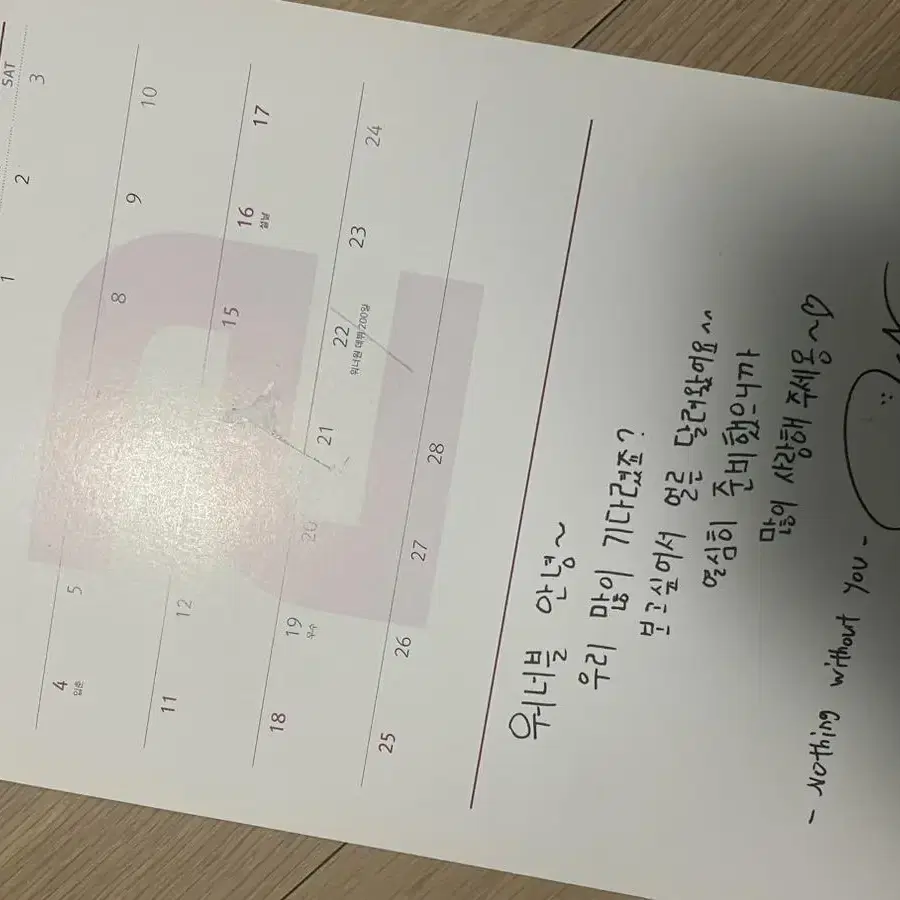 SAT
1 2 3
4 5 8 9 10
입춘
11 12 15 16 17
설날
18 19 20 21 22 23 24
우수 워너원 데뷔 200일
25 26 27 28
워너블 안녕~
우리 많이 기다렸죠?
보고싶어서 얼른 달려왔어요^^
열심히 준비했으니까
많이 사랑해 주세용~♡
- Nothing without you -